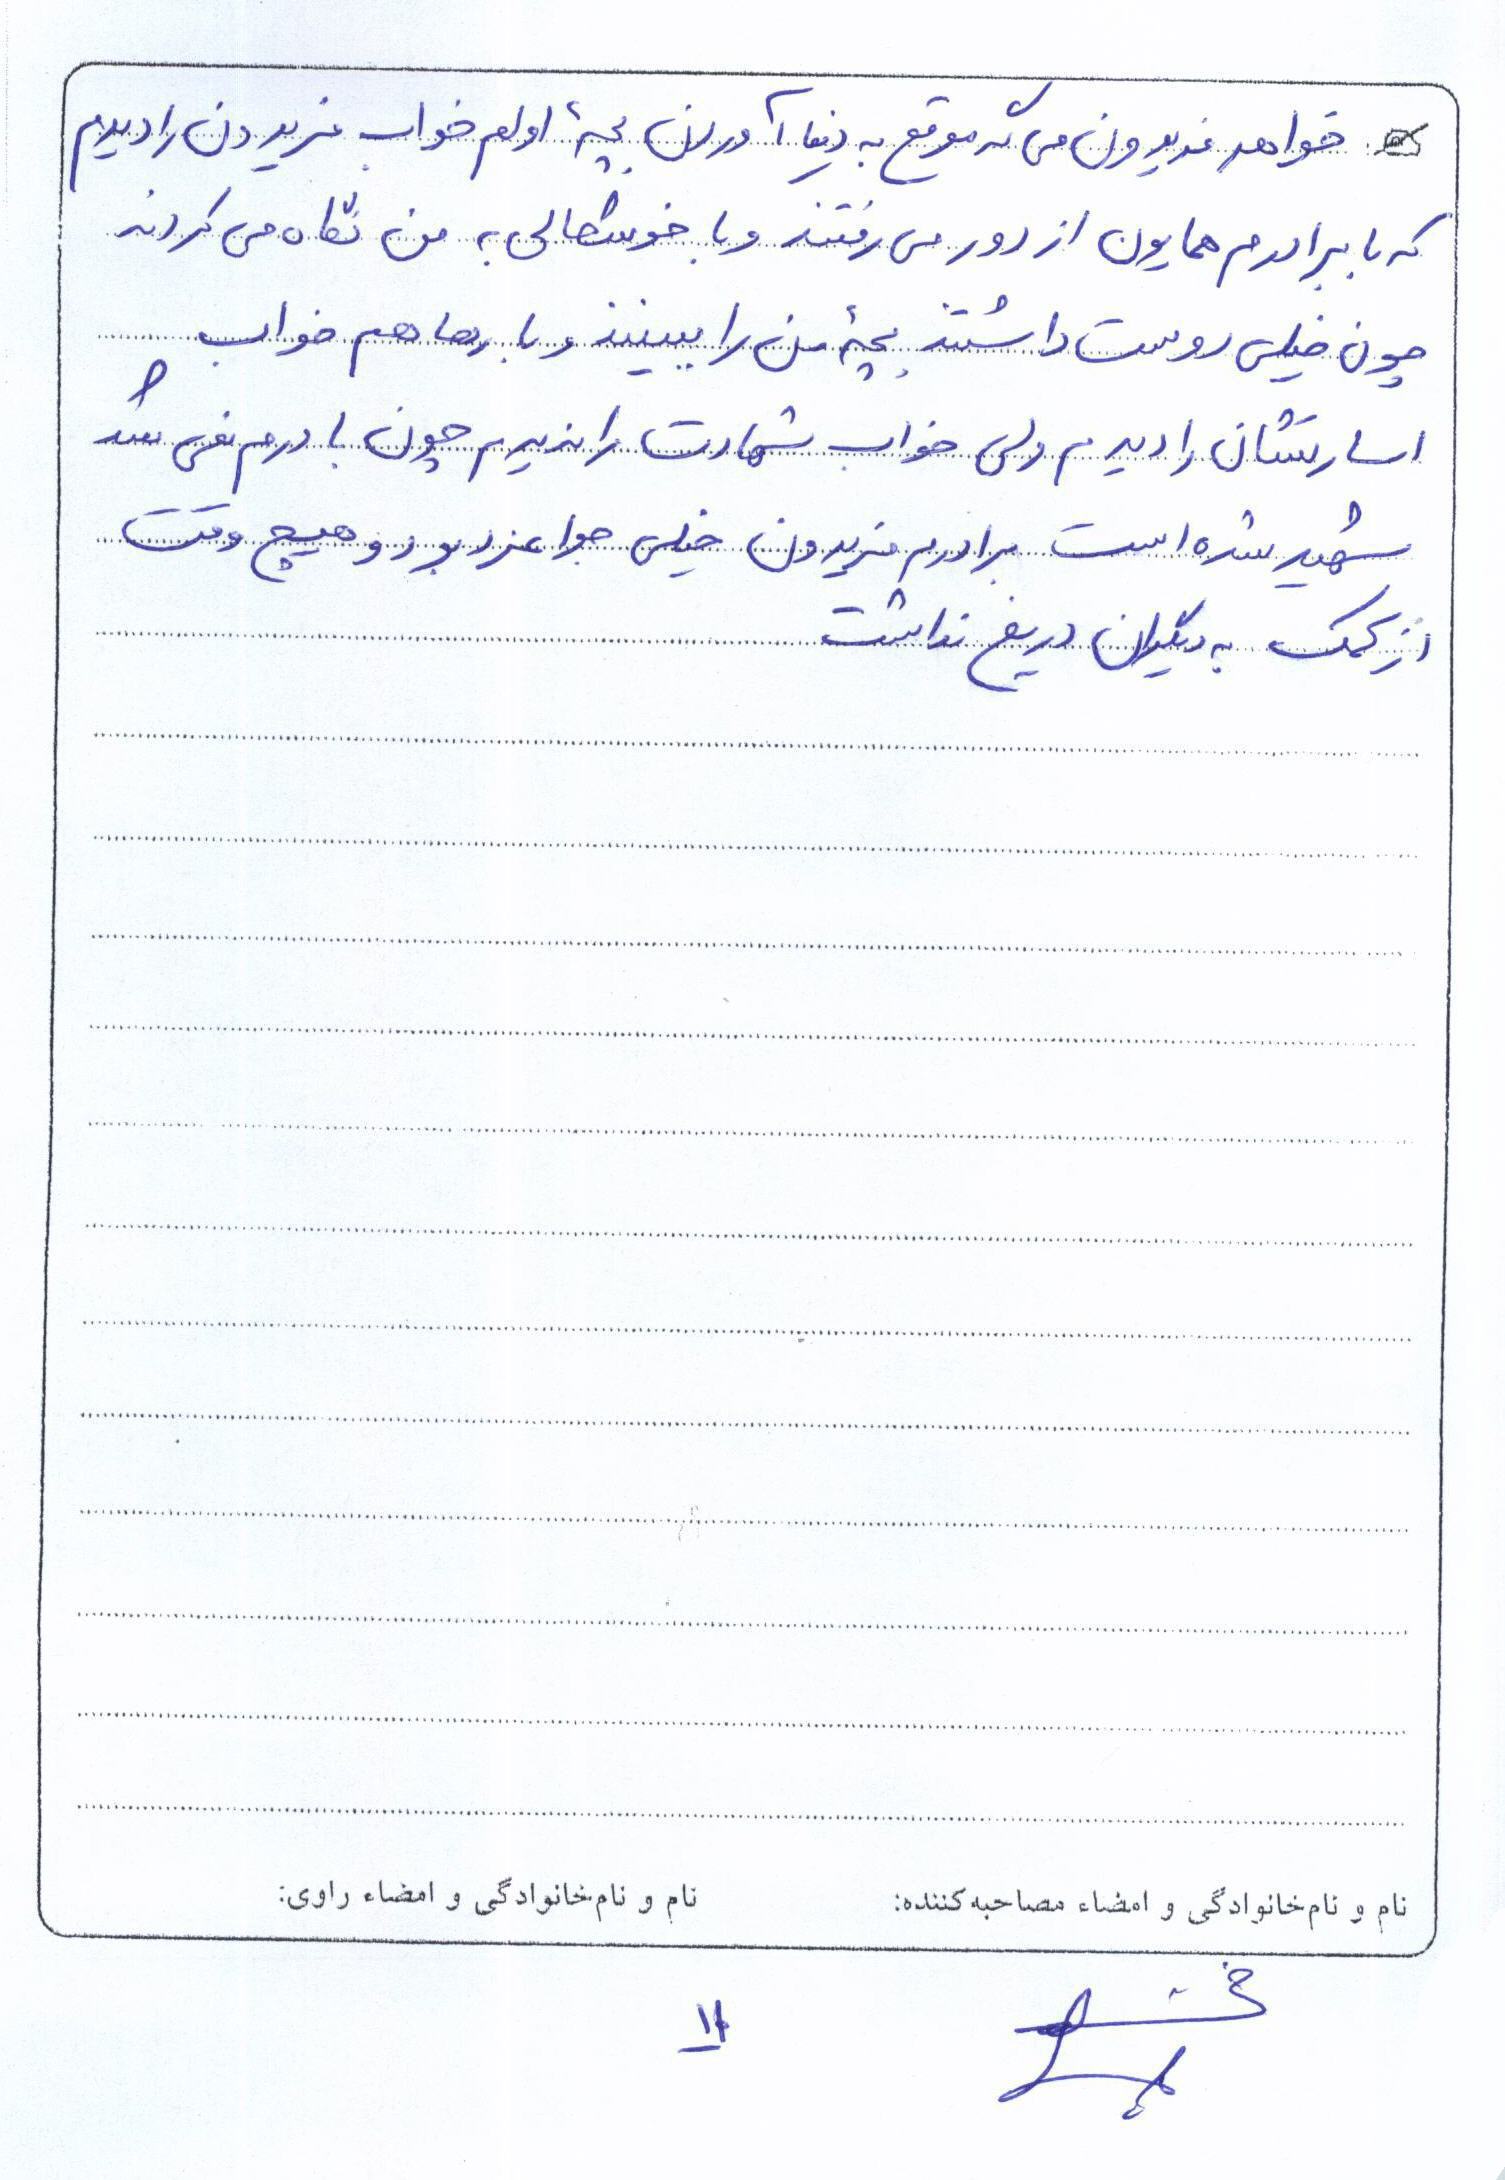 خواهر فریدون می گه موقع به دنیا آوردن بچۀ اولم خواب فریدون را دیدم
که با برادرم همایون از دور می رفتند و با خوشحالی به من نگاه می کردند
چون خیلی دوست داشتند بچۀ من را ببینند و بارها هم خواب
اسارتشان را دیدم ولی خواب شهادت را ندیدم چون باورم نمی شد
شهید شده است برادرم فریدون خیلی جوانمرد بود و هیچ وقت
از کمک به دیگران دریغ نداشت
نام و نام‌خانوادگی و امضاء مصاحبه‌کننده: نام و نام‌خانوادگی و امضاء راوی:
۱۱